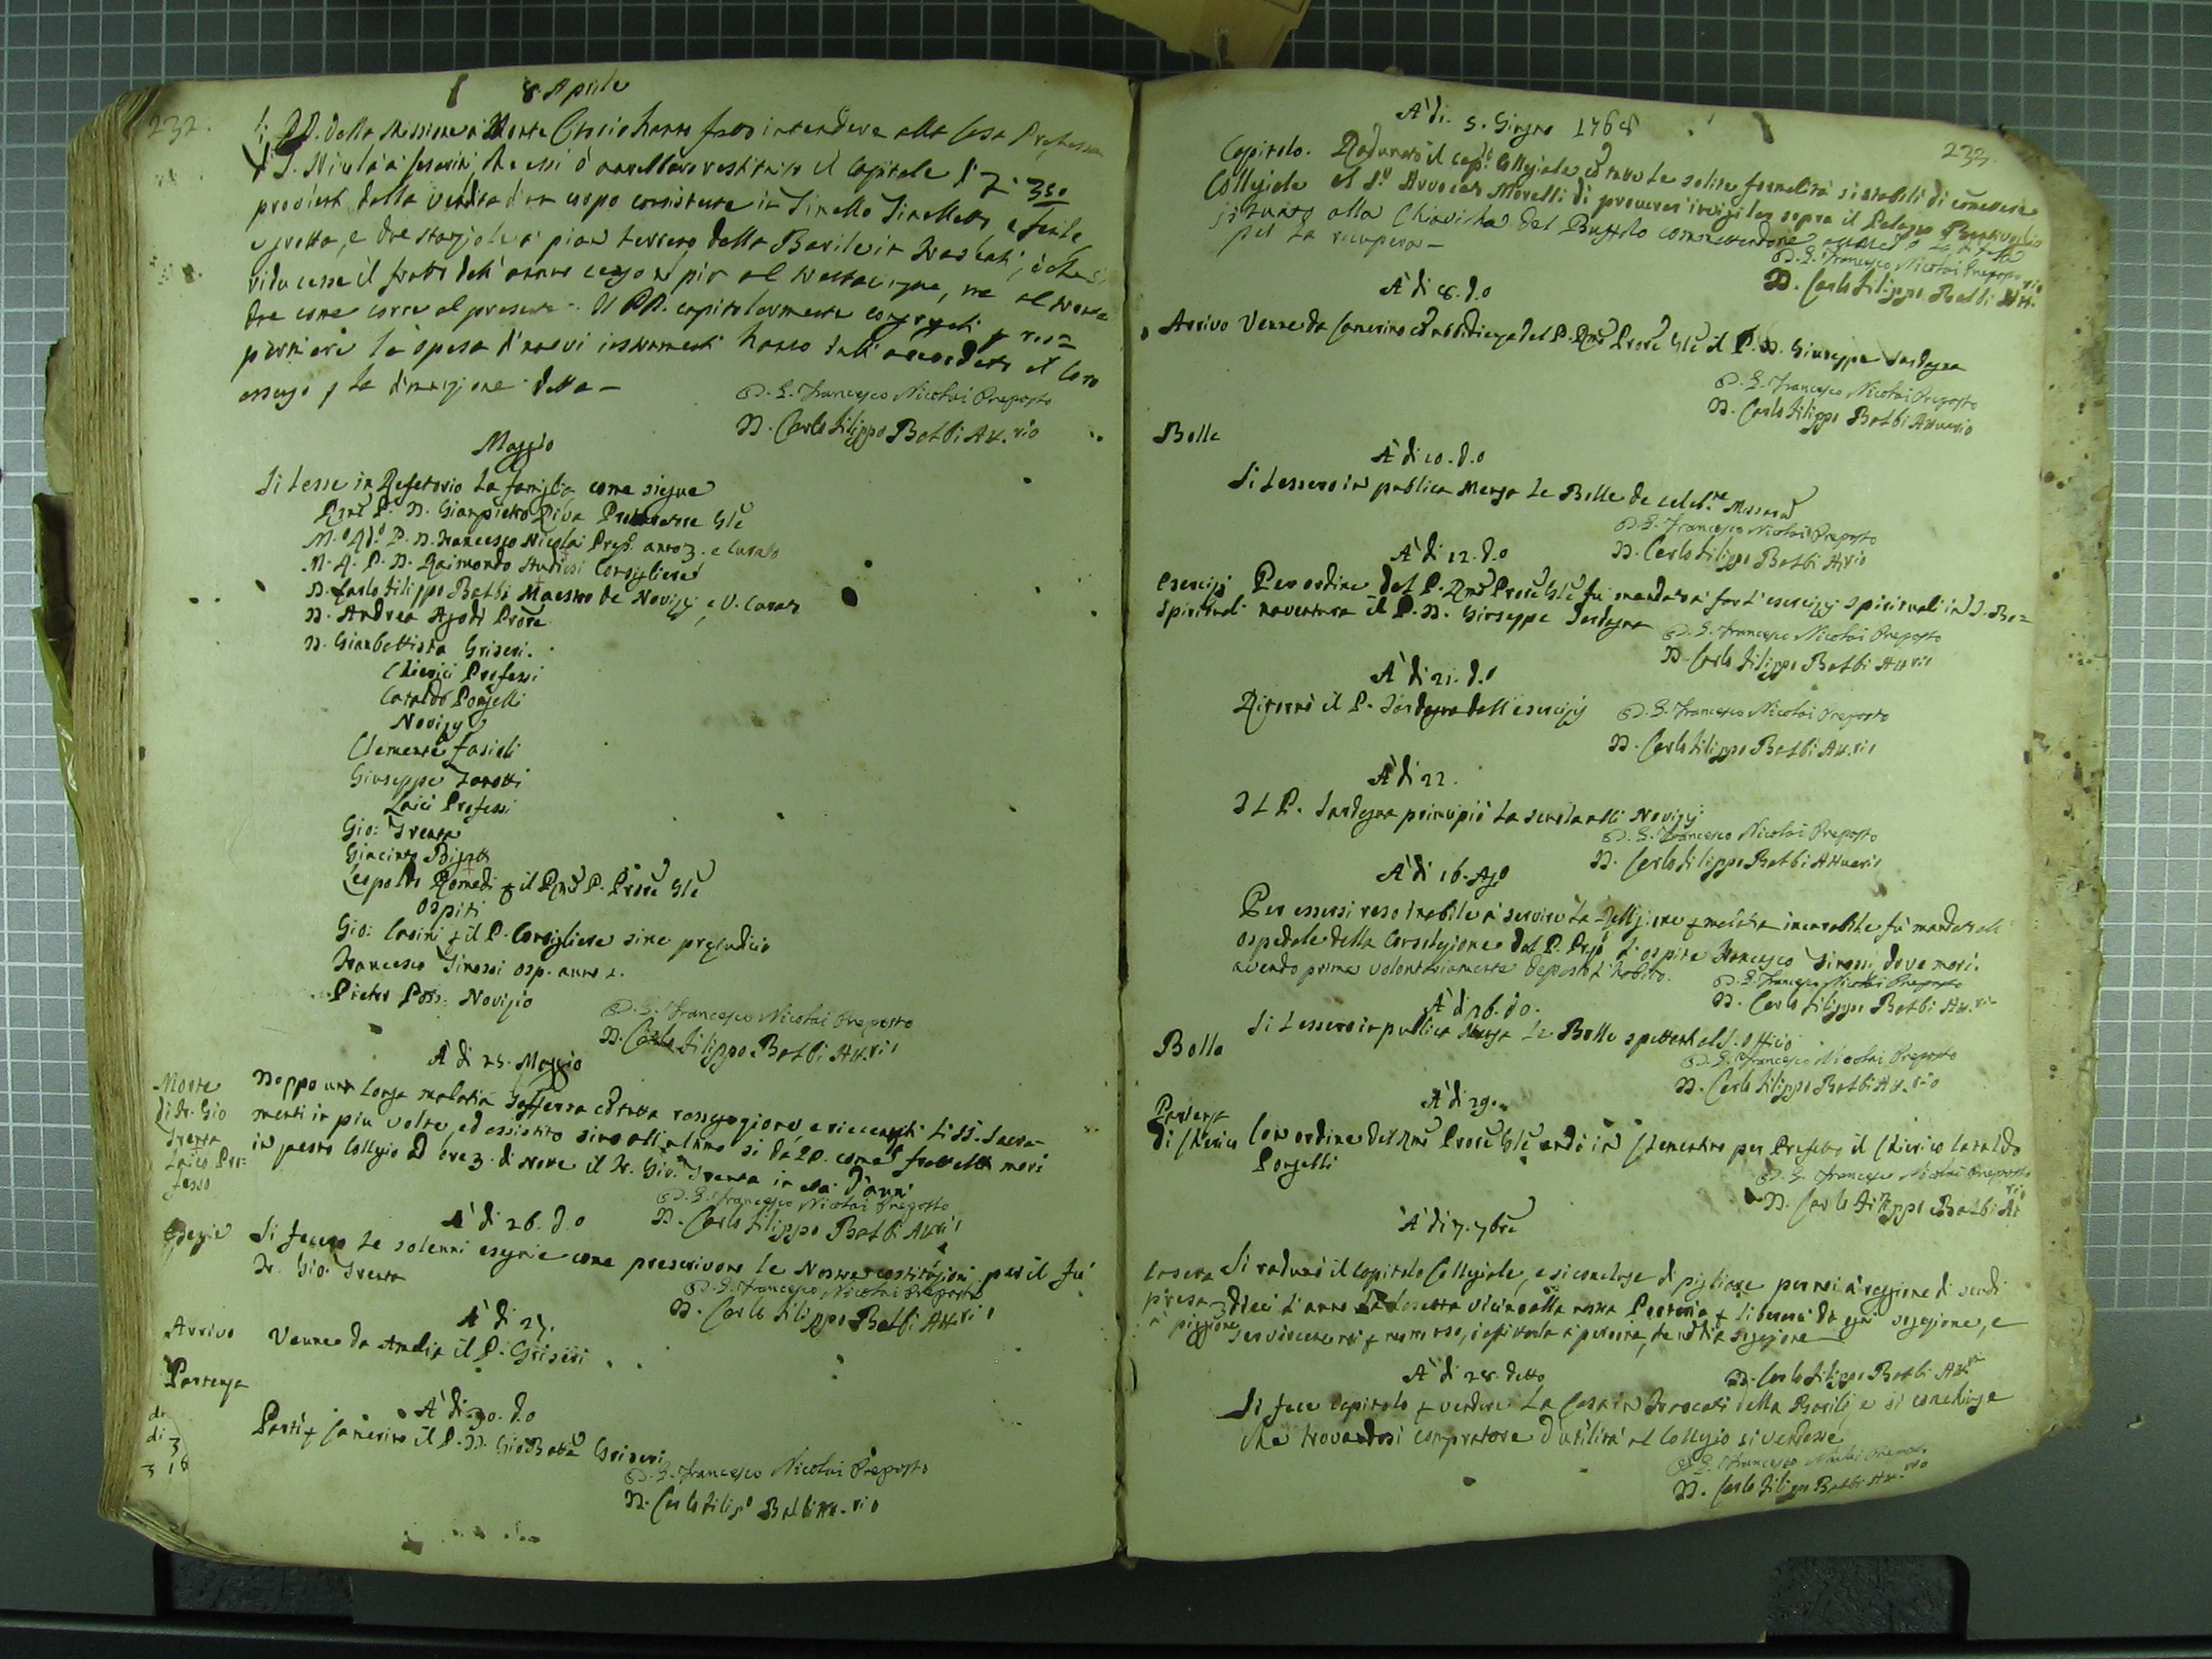 232.
8. Aprile
Li PP. della Missione a Monte Citorio hanno fatto intendere alla Casa Professa
di S. Nicola a Cesarini, che essi o anellavo restituire il Capitale di 350
provient. dalla vendita d'un corpo consistente in Tinello Tinelletto e fenile
e grotta, e due stanziole a pian terreno della Barile in Trastati, o che si
riducesse il frutto dell' annuo cen͠so non più al trettacinque, ma al trenta
due come corre al presente. Li PP. capitolarmente congregati p non
perniare la spesa di nuovi instrumenti hanno dato accordato il loro
assenso p la diminuzione detta -
D. G. Francesco Nicolai Preposto
D. Carlo Filippo Balbi Att.rio
Maggio
Si lesse in Refetorio la famiglia come siegue
Rmo P. D. Gianpietro Riva Procuratore Gle
M.o Rdo P. D. Francesco Nicolai Prep. anno 3. e Curato
M. R. P. D. Raimondo Studiosi Consigliere
D. Carlo Filippo Balbi Maestro de Novizj, e V. Curato
D. Andrea Ajodi Prore
D. Gianbattista Griseri.
Chierici Professi
Cataldo Ponzelli
Novizj
Clemente Fasioli
Giuseppe Zarotti
Laici Professi
Gio: Trenta
Giacinto Bigatti
Leopoldo Romedi p il Rmo P. Prore Gle
Ospiti
Gio: Casini p il P. Consigliere sine prejudicio
Francesco Tinossi osp. anno 2.
Pietro Poss. Novizio
D. G. Francesco Nicolai Preposto
D. Carlo Filippo Balbi Att.rio
A di 25. Maggio
Morte
di Fr. Gio
Trenta
Laico Pro=
fesso
Doppo una longa malatia sofferta co tutta rassegnazione, e ricevuti li SS. Sacra-
menti in piu volte, ed assistito sino all' ultimo si da PP. come fratelli morì
in questo Collegio ad ore 3. di notte il Fr. Gio. Trenta in età d'anni
D. G. Francesco Nicolai Preposto
D. Carlo Filippo Balbi Att.rio
A di 26. d.o
Eseqie
Si fecero le solenni eseqie come prescrivono le Nostre costituzioni per il fu
Fr. Gio. Trenta
D. G. Francesco Nicolai Preposto
D. Carlo Filippo Balbi Att.rio
A di 27.
Arrivo
Venne da Amelia il P. Griseri
Partenza
A di 30. d.o
Partì p Camerino il P. D. Gio Batta Griseri
D. G. Francesco Nicolai Preposto
D. Carlo Filipo Balbi Att.rio
233.
A di 5. Giugno 1768
Capitolo
Collegiale
Radunato il Cap.o Collegiale co tutte le solite formalità si stabilì di concedere
al Sr Avvocato Morelli di procurar invigilar sopra il Palazzo Bentivoglio
situato alla Chiavica del Buffalo commettendone
per la recupera -
D. G. Francesco Nicolai Preposto
D. Carlo Filippo Balbi Att.rio
A di 8. d.o
Arrivo Venne da Camerino co ubbidienza del P. Rmo Prore Gle il P. D. Giuseppe Sardegna
D. G. Francesco Nicolai Preposto
D. Carlo Filippo Balbi Attuario
Bolle
A di 10. d.o
Si lessero in publica Mensa le Bolle de celeb.ne Missarum
D. G. Francesco Nicolai Preposto
D. Carlo Filippo Balbi Att.rio
A di 12. d.o
Esercizj
Spirituali
Per ordine del P. Rmo Prore Gle fu mandato a far l'esercizj spirituali in S. Bo=
naventura il P. D. Giuseppe Sardegna
D. G. Francesco Nicolai Preposto
D. Carlo Filippo Balbi Att.rio
A di 21. d.o
Ritornò il P. Sardegna dall' esercizj
D. G. Francesco Nicolai Preposto
D. Carlo Filippo Balbi Att.rio
A di 22.
Il P. Sardegna principiò la scuola alli Novizj
D. G. Francesco Nicolai Preposto
D. Carlo Filippo Balbi Attuario
A di 16. Ago
Per essersi reso inabile a servire la Religione p malatia incurabile fu mandato all
ospedale della Consolazione dal P. Prep.o l'ospite Francesco Tinossi dove morì.
avendo prima volontariamente deposto l'habito.
D. G. Francesco Nicolai Preposto
D. Carlo Filippo Balbi Att.rio
A di 26. do.
Bolla
Si lessero in publica Mensa le Bolle spettanti al S. Officio
D. G. Francesco Nicolai Preposto
D. Carlo Filippo Balbi Att.rio
A di 29.
Partenza
di Chierico
Con ordine del Rmo Prore Gle andò in Clementino per Prefetto il Chierico Cataldo
Ponzelli
D. G. Francesco Nicolai Preposto
D. Carlo Filippo Balbi Att.rio
A di 7. 7bre
Casetta
presa
a piggione
Si radunò il Capitolo Collegiale, e si concluse di pigliare per noi a raggione di scudi
dieci l'anno la Casetta vicino alla nostra Porteria p liberarsi da ogni sogezione, e
servircene noi p rimesso, o affittarla a persona, che non dia sogezione
D. Carlo Filippo Balbi Att.rio
A di 28. detto
Si fece Capitolo p vendere la Casa in Avvocati della Barili, e si conchiuse
che trovandosi compratore d'utilità al Collegio si vendesse
D. G. Francesco Nicolai Preposto
D. Carlo Filippo Balbi Att.rio